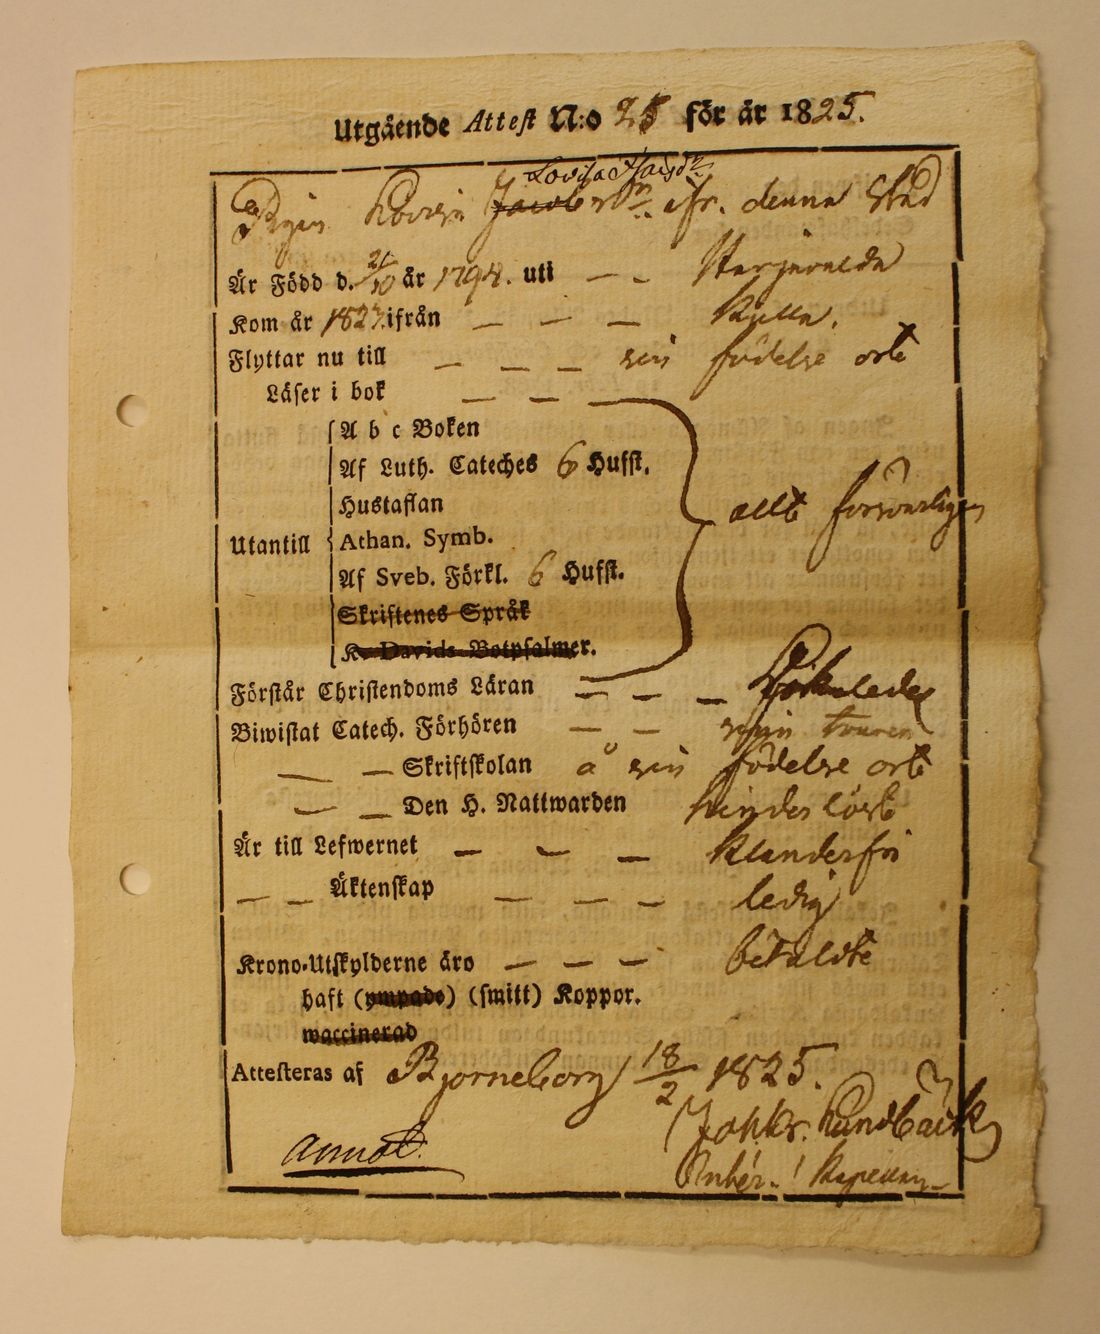 Utgående Attest N:o 25 för år 1825.
Lovisa Isacsdr.
Pigan Lovisa Jacobsdr. ifr. denna Stad
Är Född d. 21/10 år 1794. uti — — Harjavalda
Kom år 1823. ifrån — — — Kulla.
Flyttar nu till — — — — sin födelse ort
Läser i bok — — —
A b c Boken
Af Luth. Cateches 6 Hufst.
Hustaflan
allt försvarligen
Utantill
Athan. Symb.
Af Sveb. Förkl. 6 Hufst.
Skriftenes Språk
K. Davids Botpsalmer.
Förstår Christendoms Läran — — —
Biwistat Catech. Förhören — —
— — Skriftskolan å sin födelse ort
— — Den H. Nattwarden
Är till Lefwernet — — — Klanderfri
— — Äktenskap — — — ledig
Krono-Utskylderne äro — — — betaldte
haft (ympade) (smitt) Koppor.
waccinerad
Attesteras af Björneborg 18/2 1825.
Joh. Kr. Lundbäck
annot.
Kapellan